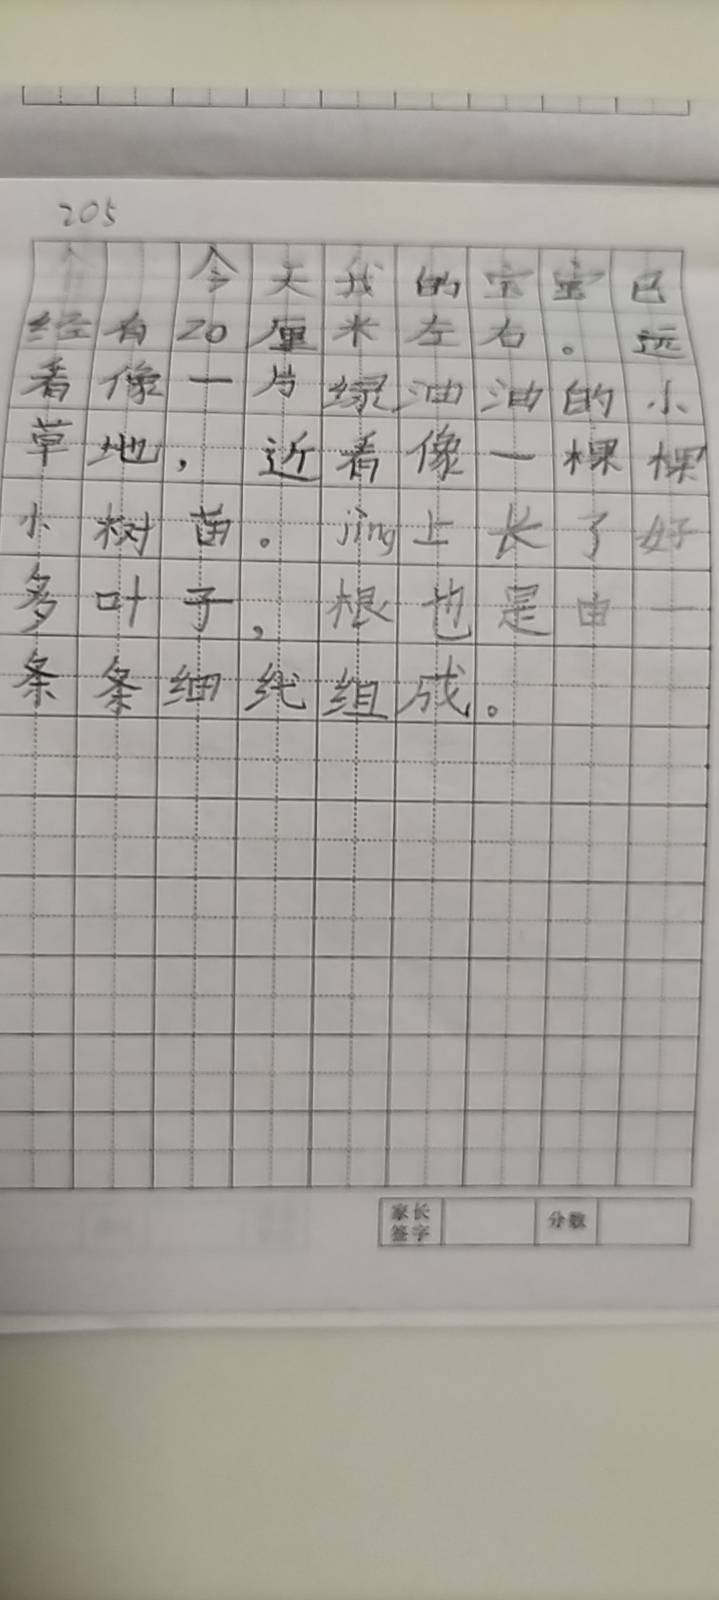 205
今天我的宝宝已
经有20厘米左右。远
看像一片绿油油的小
草地，近看像一棵棵
小树苗。jìng上长了好
多叶子，根也是由一
条条细线组成。
家长签字 分数